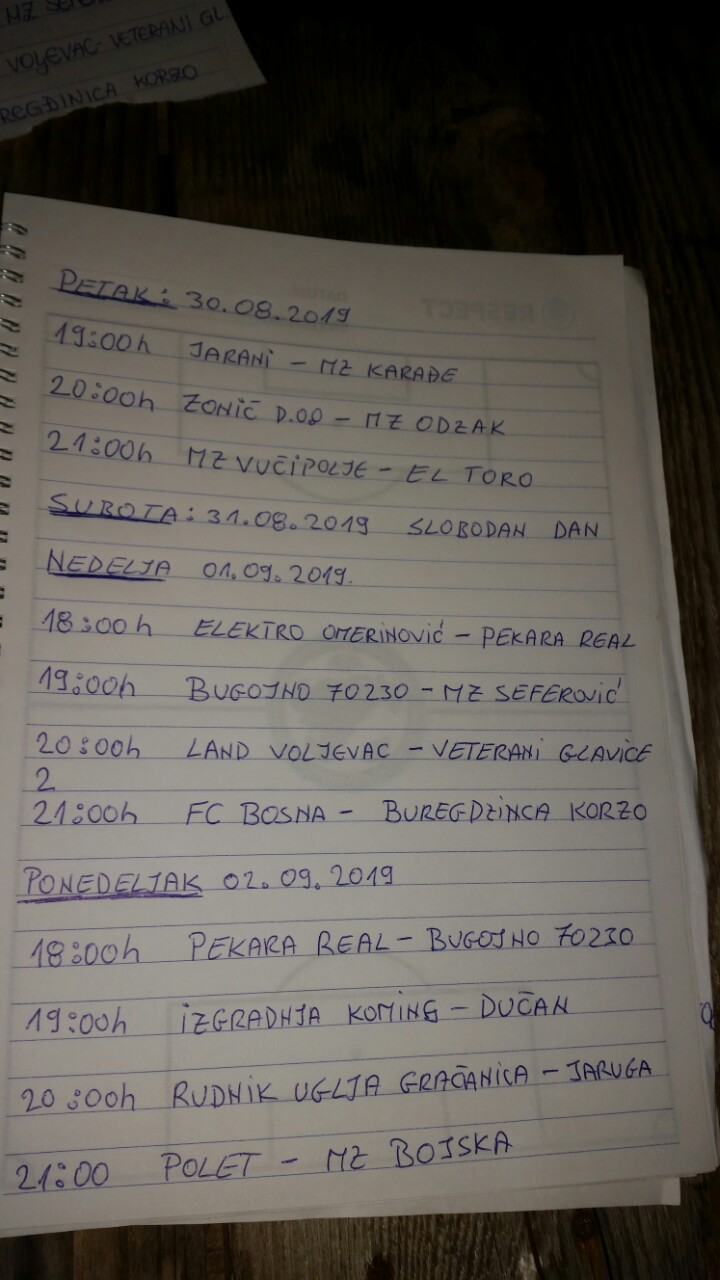 MZ SEFE
VOLJEVAC - VETERANI GL
REGĐINICA KORZO
RESPECT
PETAK: 30.08.2019
19:00h JARANI - MZ KARAĐE
20:00h ZONIČ D.OO - MZ ODZAK
21:00h MZ VUČIPOLJE - EL TORO
SUBOTA: 31.08.2019 SLOBODAN DAN
NEDELJA 01.09.2019.
18:00h ELEKTRO OMERINOVIĆ - PEKARA REAL
19:00h BUGOJNO 70230 - MZ SEFEROVIĆ
20:00h LAND VOLJEVAC - VETERANI GLAVICE
2
21:00h FC BOSNA - BUREGDZINCA KORZO
PONEDELJAK 02.09.2019
18:00h PEKARA REAL - BUGOJNO 70230
19:00h IZGRADNJA KOMING - DUČAN
20:00h RUDNIK UGLJA GRAČANICA - JARUGA
21:00 POLET - MZ BOJSKA